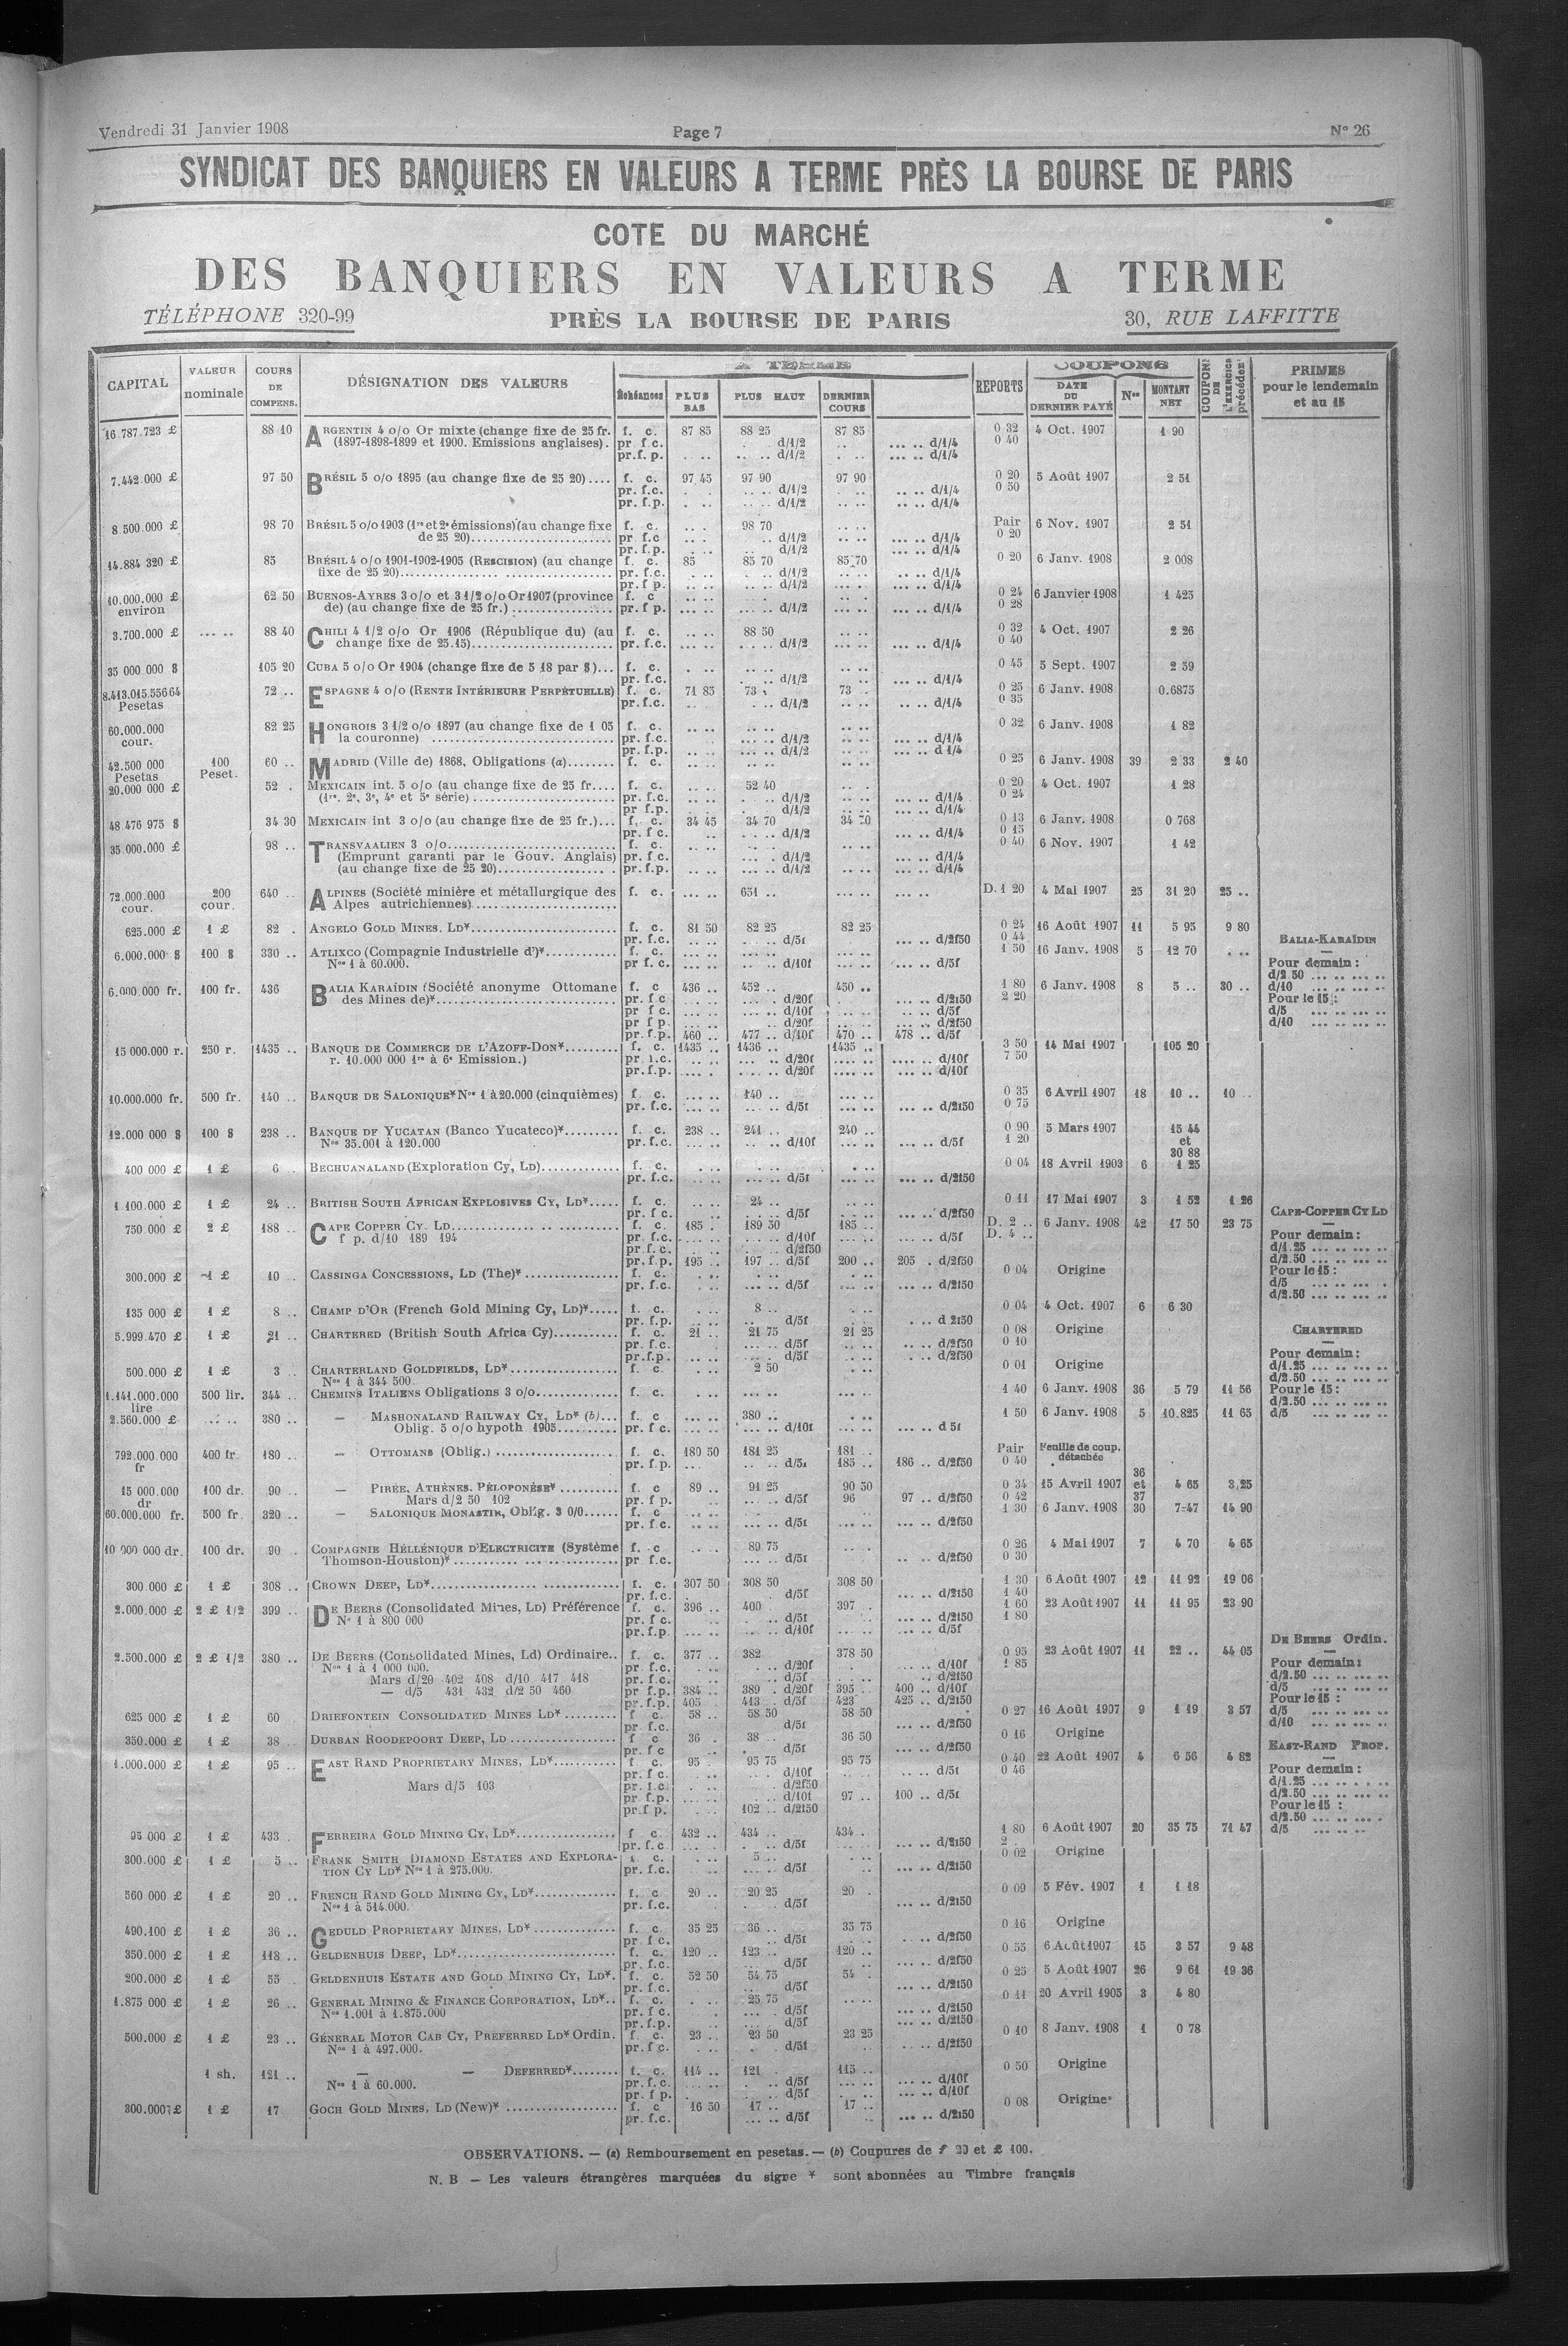 Vendredi 31 Janvier 1908 Page 7 N° 26
SYNDICAT DES BANQUIERS EN VALEURS A TERME PRÈS LA BOURSE DE PARIS
COTE DU MARCHÉ
DES BANQUIERS EN VALEURS A TERME
TÉLÉPHONE 320-99 PRÈS LA BOURSE DE PARIS 30, RUE LAFFITTE
CAPITAL VALEUR nominale COURS DE COMPENS. DÉSIGNATION DES VALEURS Échéances PLUS BAS PLUS HAUT DERNIER COURS REPORTS COUPONS DATE DU DERNIER PAYÉ Nos MONTANT NET COUPON DE L'EXERCICE précédent PRIMES pour le lendemain et au 15
16.787.723 £ 88 10 ARGENTIN 4 o/o Or mixte (change fixe de 25 fr. f. c. 87 85 88 25 87 85 0 32 4 Oct. 1907 1 90
(1897-1898-1899 et 1900. Emissions anglaises). pr f.c. d/1/2 d/1/4 0 40
pr.f. p. d/1/2 d/1/4
7.442.000 £ 97 50 BRÉSIL 5 o/o 1895 (au change fixe de 25 20).... f. c. 97 45 97 90 97 90 0 20 5 Août 1907 2 51
pr. f.c. d/1/2 d/1/4 0 50
pr. f.p. d/1/2 d/1/4
8 500.000 £ 98 70 BRÉSIL 5 o/o 1903 (1re et 2e émissions)(au change fixe f. c. 98 70 Pair 6 Nov. 1907 2 51
de 25 20) pr. f.c d/1/2 d/1/4 0 20
pr. f.p. d/1/2 d/1/4
14.884 320 £ 85 BRÉSIL 4 o/o 1901-1902-1905 (RESCISION) (au change f. c. 85 85 70 85 70 0 20 6 Janv. 1908 2 008
fixe de 25 20) pr. f.c. d/1/2 d/1/4
pr. f p. d/1/2 d/1/4
10.000.000 £ environ 62 50 BUENOS-AYRES 3 o/o et 3 1/2 o/o Or 1907 (province f. c 0 24 6 Janvier 1908 1 425
de) (au change fixe de 25 fr.) pr. f p. d/1/2 d/1/4 0 28
3.700.000 £ 88 40 CHILI 4 1/2 o/o Or 1906 (République du) (au f. c. 88 50 0 32 4 Oct. 1907 2 26
change fixe de 25.15) pr. f.c. d/1/2 d/1/4 0 40
35 000 000 $ 105 20 CUBA 5 o/o Or 1904 (change fixe de 5 18 par $)... f. c. 0 45 5 Sept. 1907 2 59
pr. f.c. d/1/2 d/1/4
8.413.015.556 64 Pesetas 72 .. ESPAGNE 4 o/o (RENTE INTÉRIEURE PERPÉTUELLE) f. c. 71 85 73 73 0 25 6 Janv. 1908 0.6875
pr. f.c. d/1/2 d/1/4 0 35
60.000.000 cour. 82 25 HONGROIS 3 1/2 o/o 1897 (au change fixe de 1 05 f. c. 0 32 6 Janv. 1908 1 82
la couronne) pr. f.c. d/1/2 d/1/4
pr. f.p. d/1/2 d 1/4
42.500 000 Pesetas 100 Peset. 60 .. MADRID (Ville de) 1868, Obligations (a) f. c. 0 25 6 Janv. 1908 39 2 33 2 40
20.000 000 £ 52 . MEXICAIN int. 5 o/o (au change fixe de 25 fr.... f. c. 52 40 0 20 4 Oct. 1907 1 28
(1re, 2e, 3e, 4e et 5e série) pr. f.c. d/1/2 d/1/4 0 24
pr f.p. d/1/2 d/1/4
48.476 975 $ 34 30 MEXICAIN int 3 o/o (au change fixe de 25 fr.)... f. c. 34 45 34 70 0 13 6 Janv. 1908 0 768
pr. f c. d/1/2 d/1/4 0 15
35.000.000 £ 98 .. TRANSVAALIEN 3 o/o f. c. 0 40 6 Nov. 1907 1 42
(Emprunt garanti par le Gouv. Anglais) pr. f.c. d/1/2 d/1/4
(au change fixe de 25 20) pr. f.p. d/1/2 d/1/4
72.000.000 cour. 200 cour. 640 .. ALPINES (Société minière et métallurgique des f. c. 651 .. D. 1 20 4 Mai 1907 25 31 20 25 ..
Alpes autrichiennes)
625.000 £ 1 £ 82 . ANGELO GOLD MINES, LD* f. c. 81 50 82 25 82 25 0 24 16 Août 1907 11 5 95 9 80
pr. f.c. d/5f d/2f50 0 44
6.000.000 $ 100 $ 330 .. ATLIXCO (Compagnie Industrielle d')* f. c. 1 50 16 Janv. 1908 5 12 70
Nos 1 à 60.000. pr f. c. d/10f d/5f
6.000.000 fr. 100 fr. 436 BALIA KARAÏDIN (Société anonyme Ottomane f. c 436 .. 452 .. 450 .. 1 80 6 Janv. 1908 8 5 .. 30 ..
des Mines de)* pr. f c d/20f d/2f50 2 20
pr f c. d/10f d/5f
pr f p. d/20f d/2f50
pr. f.p. 460 .. 477 .. d/10f 470 .. 478 .. d/5f
BALIA-KARAÏDIN
Pour demain :
d/2 50
d/10
Pour le 15 :
d/5
d/10
15 000.000 r. 250 r. 1435 .. BANQUE DE COMMERCE DE L'AZOFF-DON* f. c. 1435 .. 1436 .. 1435 .. 3 50 14 Mai 1907 105 20
r. 10.000 000 1re à 6e Emission.) pr. f.c. d/20f d/10f 7 50
pr. f.p. d/20f d/10f
10.000.000 fr. 500 fr. 140 .. BANQUE DE SALONIQUE* Nos 1 à 20.000 (cinquièmes) f. c. 140 .. 0 35 6 Avril 1907 18 10 .. 10 ..
pr. f.c. d/5f d/2f50 0 75
12.000 000 $ 100 $ 238 .. BANQUE DE YUCATAN (Banco Yucateco)* f. c. 238 .. 241 .. 240 .. 0 90 5 Mars 1907 15 44
Nos 35.001 à 120.000 pr. f.c. d/10f d/5f 1 20 et
30 88
400 000 £ 1 £ 6 .. BECHUANALAND (Exploration Cy, LD) f. c. 0 04 18 Avril 1903 6 1 25
pr. f.c. d/5f d/2f50
1.100.000 £ 1 £ 24 .. BRITISH SOUTH AFRICAN EXPLOSIVES CY, LD* f. c. 24 .. 0 11 17 Mai 1907 3 1 52 1 26
pr. f c. d/5f d/2f50
750 000 £ 2 £ 188 .. CAPE COPPER CY. LD f. c. 185 . 189 50 185 .. D. 2 .. 6 Janv. 1908 42 17 50 23 75
f p. d/10 189 194 pr. f.c. d/10f d/5f D. 4 ..
pr. f. c. d/2f50
pr. f.p. 195 .. 197 .. d/5f 200 .. 205 . d/2f50
CAPE-COPPER CY LD
Pour demain :
d/1.25
d/2.50
Pour le 15 :
d/5
d/2.50
300.000 £ 1 £ 10 .. CASSINGA CONCESSIONS, LD (The)* f. c. 0 04 Origine
pr. f.c. d/5f d/2f50
135 000 £ 1 £ 8 .. CHAMP D'OR (French Gold Mining Cy, LD)* f. c. 8 .. 0 04 4 Oct. 1907 6 6 30
pr. f.p. d/5f d 2f50
5.999.470 £ 1 £ 21 .. CHARTERED (British South Africa Cy) f. c. 21 .. 21 75 21 25 0 08 Origine
pr. f.c. d/5f d/2f50 0 10
pr.f.p. d/5f d/2f50
CHARTERED
Pour demain :
d/1.25
d/2.50
Pour le 15 :
d/2.50
d/5
500.000 £ 1 £ 3 .. CHARTERLAND GOLDFIELDS, LD* f. c. 2 50 0 01 Origine
Nos 1 à 344 500.
1.141.000.000 lire 500 lir. 344 .. CHEMINS ITALIENS Obligations 3 o/o f. c. 1 40 6 Janv. 1908 36 5 79 11 56
2.560.000 £ 380 .. — MASHONALAND RAILWAY CY, LD* (b)... f. c 380 .. 1 50 6 Janv. 1908 5 10.825 11 65
Oblig. 5 o/o hypoth 1905 pr. f c. d/10f d 5f
792.000.000 fr 400 fr. 180 .. — OTTOMANS (Oblig.) f. c. 180 50 181 25 181 .. Pair Feuille de coup. détachée
pr. f.p. d/5f 185 .. 186 .. d/2f50 0 40
15 000.000 dr 100 dr. 90 .. — PIRÉE, ATHÈNES, PÉLOPONÈSE* f. c 89 .. 91 25 90 50 0 34 15 Avril 1907 36 et 37 4 65 3.25
Mars d/2 50 102 pr. f p. d/5f 96 97 .. d/2f50 0 42
60.000.000 fr. 500 fr. 320 .. — SALONIQUE MONASTIR, Oblig. 3 0/0 f. c 1 30 6 Janv. 1908 30 7-47 14 90
pr. f c. d/5f d/2f50
10 000 000 dr. 100 dr. 90 .. COMPAGNIE HÉLLÉNIQUE D'ELECTRICITE (Système f. c 89 75 0 26 4 Mai 1907 7 4 70 4 65
Thomson-Houston)* pr f.c. d/5f d/2f50 0 30
300.000 £ 1 £ 308 .. CROWN DEEP, LD* f. c. 307 50 308 50 308 50 1 30 6 Août 1907 12 11 92 19 06
pr. f.c. d/5f d/2f50 1 40
2.000.000 £ 2 £ 1/2 399 .. DE BEERS (Consolidated Mines, LD) Préférence f. c. 396 .. 400 . 397 . 1 60 23 Août 1907 11 11 95 23 90
N° 1 à 800 000 pr. f c. d/5f d/2f50 1 80
pr. f.p. d/10f d/5f
2.500.000 £ 2 £ 1/2 380 .. DE BEERS (Consolidated Mines, Ld) Ordinaire.. f. c. 377 .. 382 378 50 0 95 23 Août 1907 11 22 .. 44 05
Nos 1 à 1 000 000. pr. f.c. d/20f d/10f 1 85
Mars d/20 402 408 d/10 417 418 pr. f.c. d/5f d/2f50
— d/5 431 432 d/2 50 460 pr f.p. 384 .. 389 . d/20f 395 .. 400 .. d/10f
pr. f.p. 405 413 . d/5f 423 425 .. d/2f50
DE BEERS Ordin.
Pour demain :
d/2.50
d/5
Pour le 15 :
d/5
d/10
625 000 £ 1 £ 60 DRIEFONTEIN CONSOLIDATED MINES LD* f c. 58 .. 58 50 58 50 0 27 16 Août 1907 9 1 19 3 57
pr. f.c. d/5f d/2f50
350.000 £ 1 £ 38 .. DURBAN ROODEPOORT DEEP, LD f c 36 . 38 .. 36 50 0 16 Origine
pr. f c d/5f d/2f50
1.000.000 £ 1 £ 95 .. EAST RAND PROPRIETARY MINES, LD* f c. 95 . 95 75 95 75 0 40 22 Août 1907 4 6 56 4 82
pr. f c. d/10f d/5f 0 46
Mars d/5 103 pr. f.c. d/2f50
pr. f.p. d/10f 97 .. 100 .. d/5f
pr.f p. 102 .. d/2f50
EAST-RAND PROP.
Pour demain :
d/1.25
d/2.50
Pour le 15 :
d/2.50
d/5
95 000 £ 1 £ 433 . FERREIRA GOLD MINING CY, LD* f c. 432 .. 434 .. 434 . 1 80 6 Août 1907 20 35 75 71 47
pr. f.c d/5f d/2f50 2 .
300.000 £ 1 £ 5 .. FRANK SMITH DIAMOND ESTATES AND EXPLORA- f. c. 5 .. 0 02 Origine
TION CY LD* Nos 1 à 275.000. pr. f.c. d/5f d/2f50
560 000 £ 1 £ 20 .. FRENCH RAND GOLD MINING CY, LD* f. c 20 .. 20 25 20 . 0 09 5 Fév. 1907 1 1 18
Nos 1 à 514.000. pr. f.c. d/5f d/2f50
490.100 £ 1 £ 36 .. GEDULD PROPRIETARY MINES, LD* f. c. 35 25 36 .. 35 75 0 16 Origine
pr. f c. d/5f d/2f50
350.000 £ 1 £ 118 .. GELDENHUIS DEEP, LD* f. c. 120 .. 123 .. 120 .. 0 55 6 Août 1907 15 3 57 9 48
pr. f.c. d/5f d/2f50
200.000 £ 1 £ 55 . GELDENHUIS ESTATE AND GOLD MINING CY, LD*. f. c. 52 50 54 75 54 . 0 25 5 Août 1907 26 9 61 19 36
pr. f.c. d/5f d/2f50
1.875 000 £ 1 £ 26 .. GENERAL MINING & FINANCE CORPORATION, LD*.. f. c. 25 75 0 11 20 Avril 1905 3 4 80
Nos 1.001 à 1.875.000 pr. f c. d/5f d/2f50
pr. f.p. d/5f d/2f50
500.000 £ 1 £ 23 .. GÉNERAL MOTOR CAB CY, PREFERRED LD* Ordin. f c. 23 .. 23 50 23 25 0 10 8 Janv. 1908 1 0 78
Nos 1 à 497.000. pr. f c. d/5f d/2f50
1 sh. 121 .. — — DEFERRED* f. c. 114 .. 121 . 115 .. 0 50 Origine
Nos 1 à 60.000. pr. f.c. d/5f d/10f
pr. f p. d/5f d/10f
300.000 £ 1 £ 17 GOCH GOLD MINES, LD (New)* f. c 16 50 17 .. 17 .. 0 08 Origine
pr. f.c. d/5f d/2f50
OBSERVATIONS. — (a) Remboursement en pesetas. — (b) Coupures de £ 20 et £ 100.
N. B — Les valeurs étrangères marquées du signe * sont abonnées au Timbre français